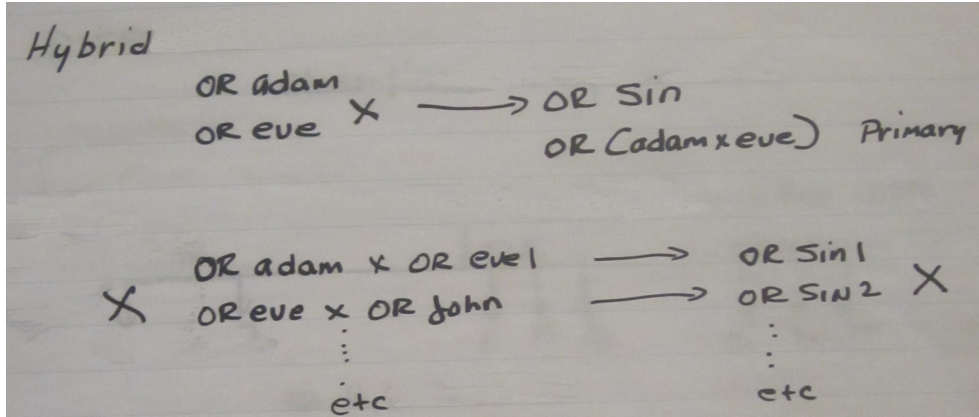 Hybrid
OR adam
OR eve X → OR Sin
OR (adam x eve) Primary
OR adam x OR eve1 → OR Sin1
X OR eve x OR John → OR SIN2 X
etc etc